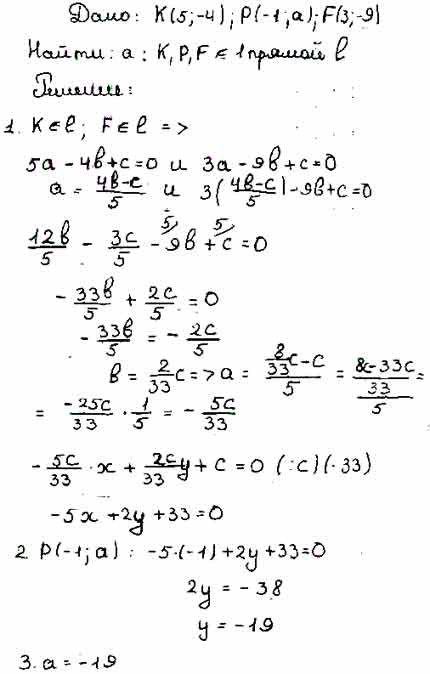 Дано: K(5;-4); P(-1;a); F(3;-9)
Найти: a: K, P, F ∈ 1 прямой l
Решение:
1. K ∈ l; F ∈ l =>
5a - 4b + c = 0 и 3a - 9b + c = 0
a = (4b-c)/5 и 3((4b-c)/5) - 9b + c = 0
12b/5 - 3c/5 - 9b^{/5} + c^{/5} = 0
- 33b/5 + 2c/5 = 0
- 33b/5 = - 2c/5
b = 2/33 c => a = (8/33 c - c)/5 = ((8c-33c)/33)/5 =
= -25c/33 · 1/5 = - 5c/33
- 5c/33 · x + 2c/33 y + c = 0 (:c)(·33)
-5x + 2y + 33 = 0
2 P(-1; a) : -5·(-1) + 2y + 33 = 0
2y = -38
y = -19
3. a = -19